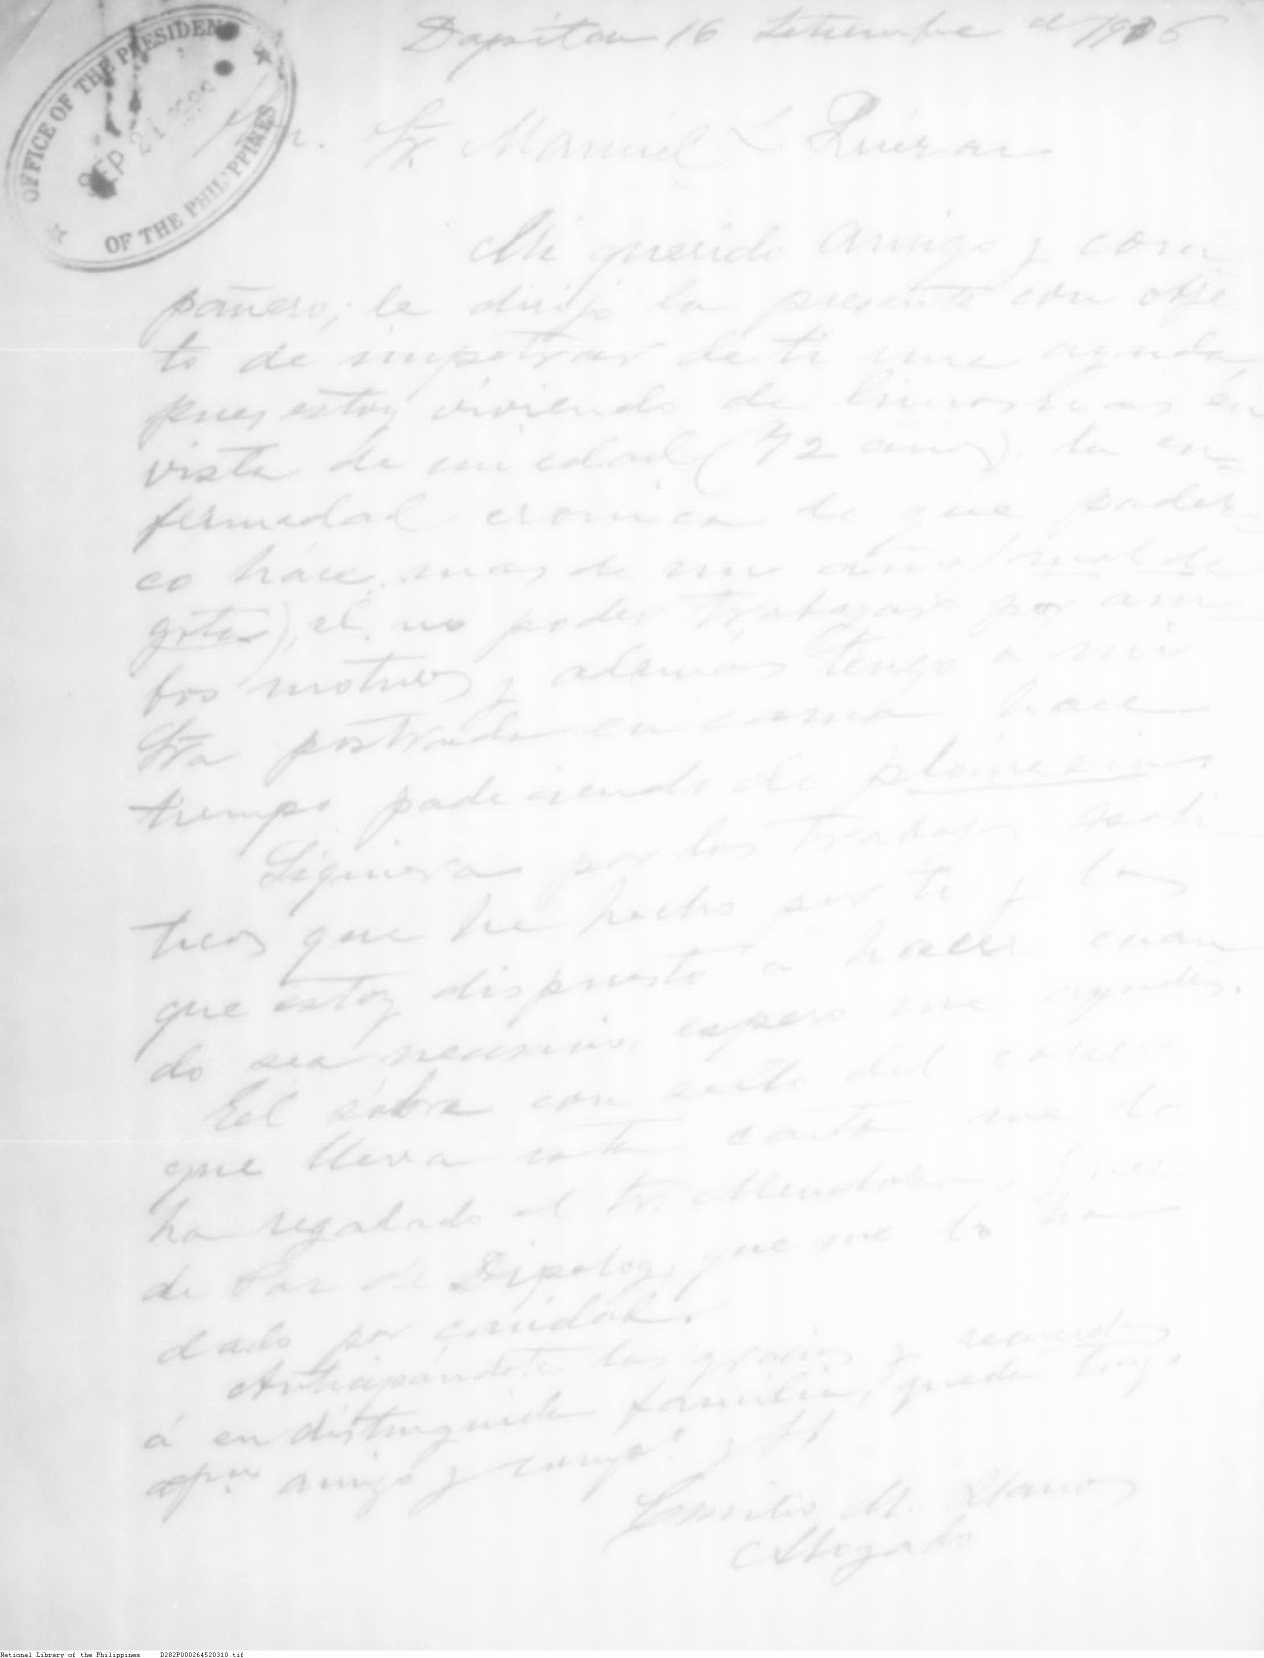 OFFICE OF THE PRESIDENT
SEP 21
OF THE PHILIPPINES
Dapitan 16 Setiembre de 1936
Sr. Manuel L Quezon
Mi querido amigo y com
pañero; te dirijo la presente con obje
to de impetrar de ti una ayuda,
pues estoy viviendo de limosnas en
vista de mi edad (72 años), la en=
fermedad cronica de que padez
co hace mas de un año (mal de
gota), el no poder trabajar por am
bos motivos y además tengo a mi
Sra postrada en cama hace
tiempo padeciendo de
Siquiera por los trabajos
ticos que he hecho por ti y los
que estoy dispuesto a hacer cuan
do sea necesario, espero me ayudes.
El sobre con sello del correo
que lleva esta carta me lo
ha regalado el Sr. Mendoza
de Paz de Dipolog, que me lo ha
dado por caridad.
Anticipándote las gracias y recuerdos
á en distinguida familia, queda tuyo
amigo y
M.
Abogado
National Library of the Philippines D282P000264520310.tif